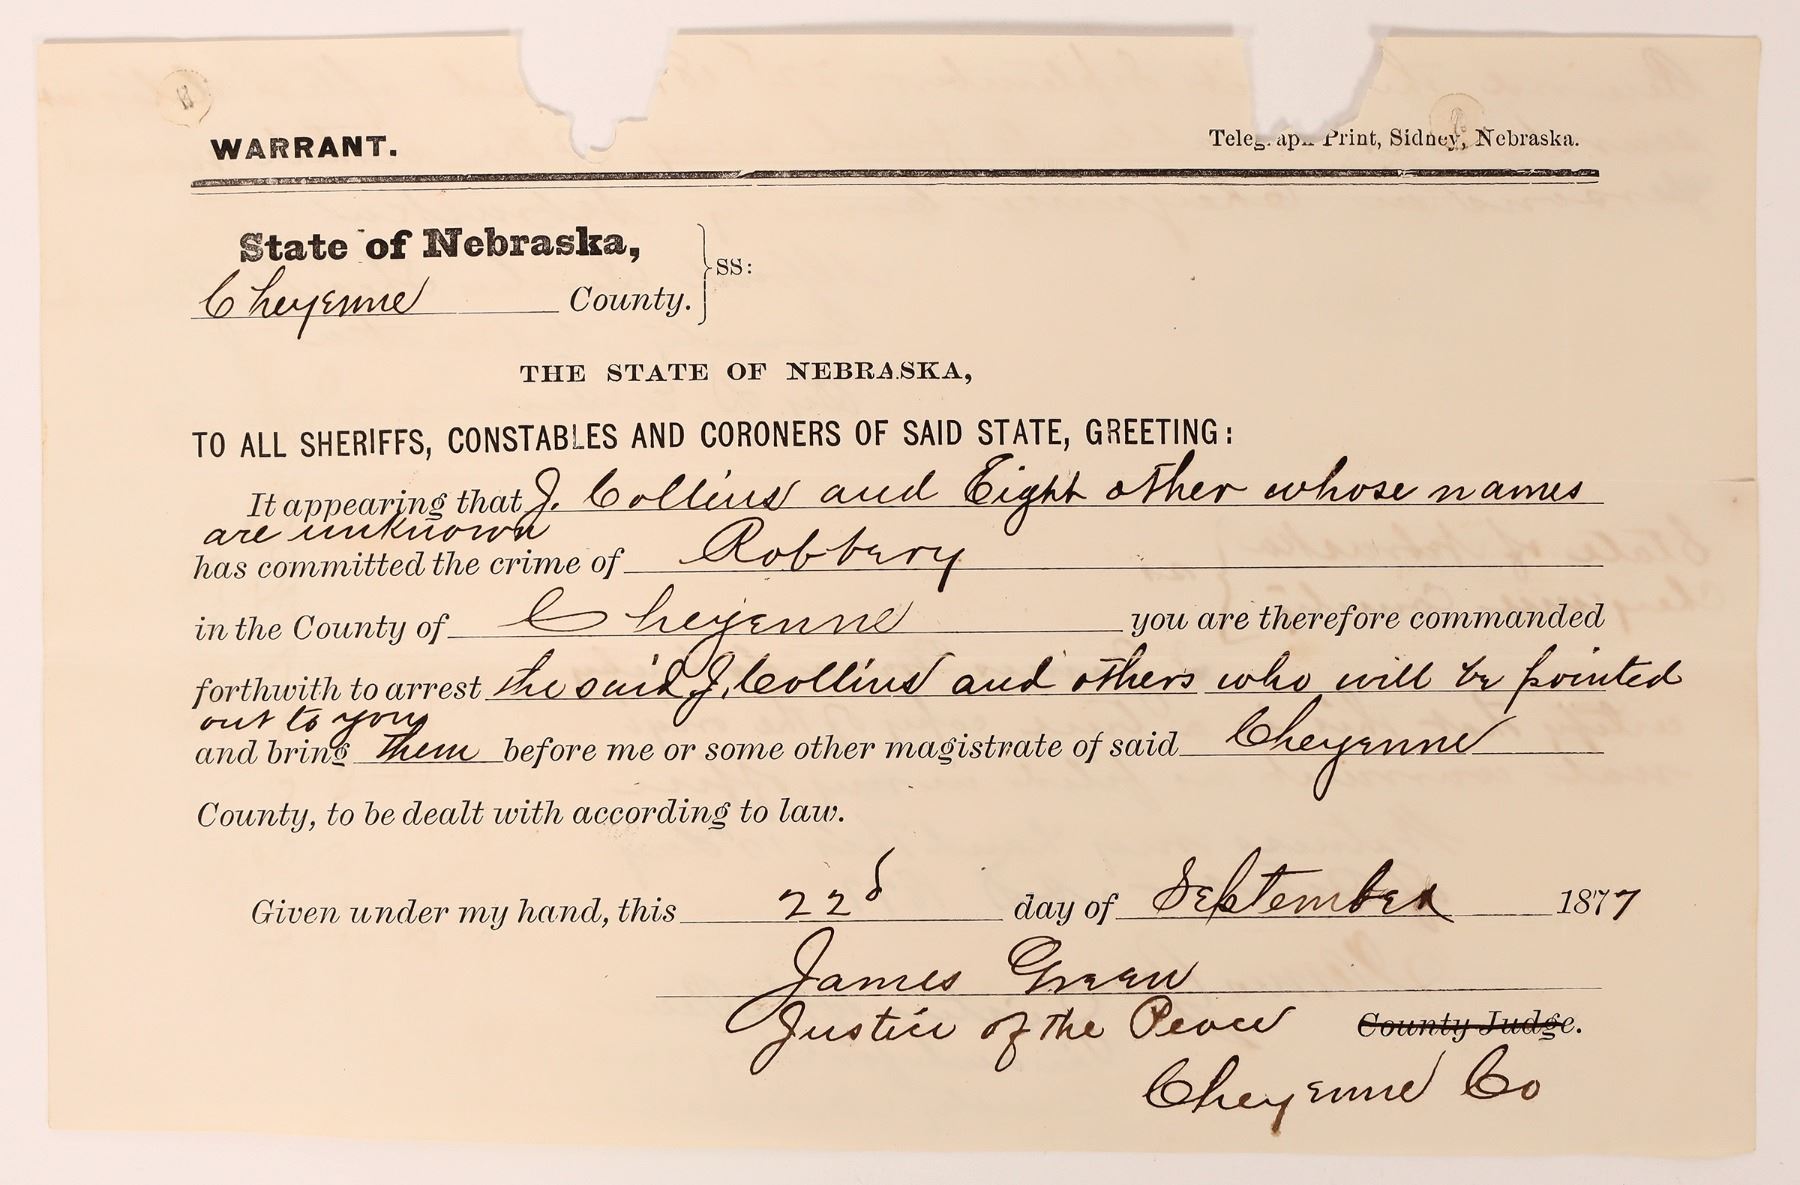 WARRANT.
Telegraph Print, Sidney, Nebraska.
State of Nebraska,
Cheyenne County. } SS:
THE STATE OF NEBRASKA,
TO ALL SHERIFFS, CONSTABLES AND CORONERS OF SAID STATE, GREETING:
It appearing that J. Collins and Eight other whose names
are unknown
has committed the crime of Robbery
in the County of Cheyenne you are therefore commanded
forthwith to arrest the said J. Collins and others who will be pointed
out to you
and bring them before me or some other magistrate of said Cheyenne
County, to be dealt with according to law.
Given under my hand, this 22d day of September 1877
James Green
Justice of the Peace County Judge.
Cheyenne Co